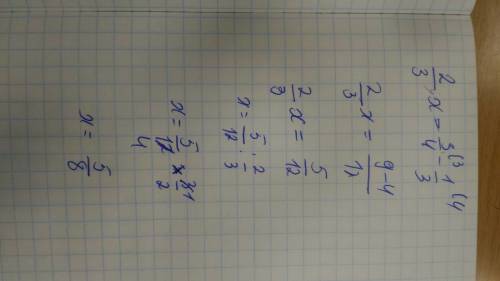 2/3 · x = 3/4 (3 - 1/3 (4
2/3 x = 9-4/12
2/3 x = 5/12
x = 5/12 : 2/3
x = 5/12 4 × 3 1/2
x = 5/8